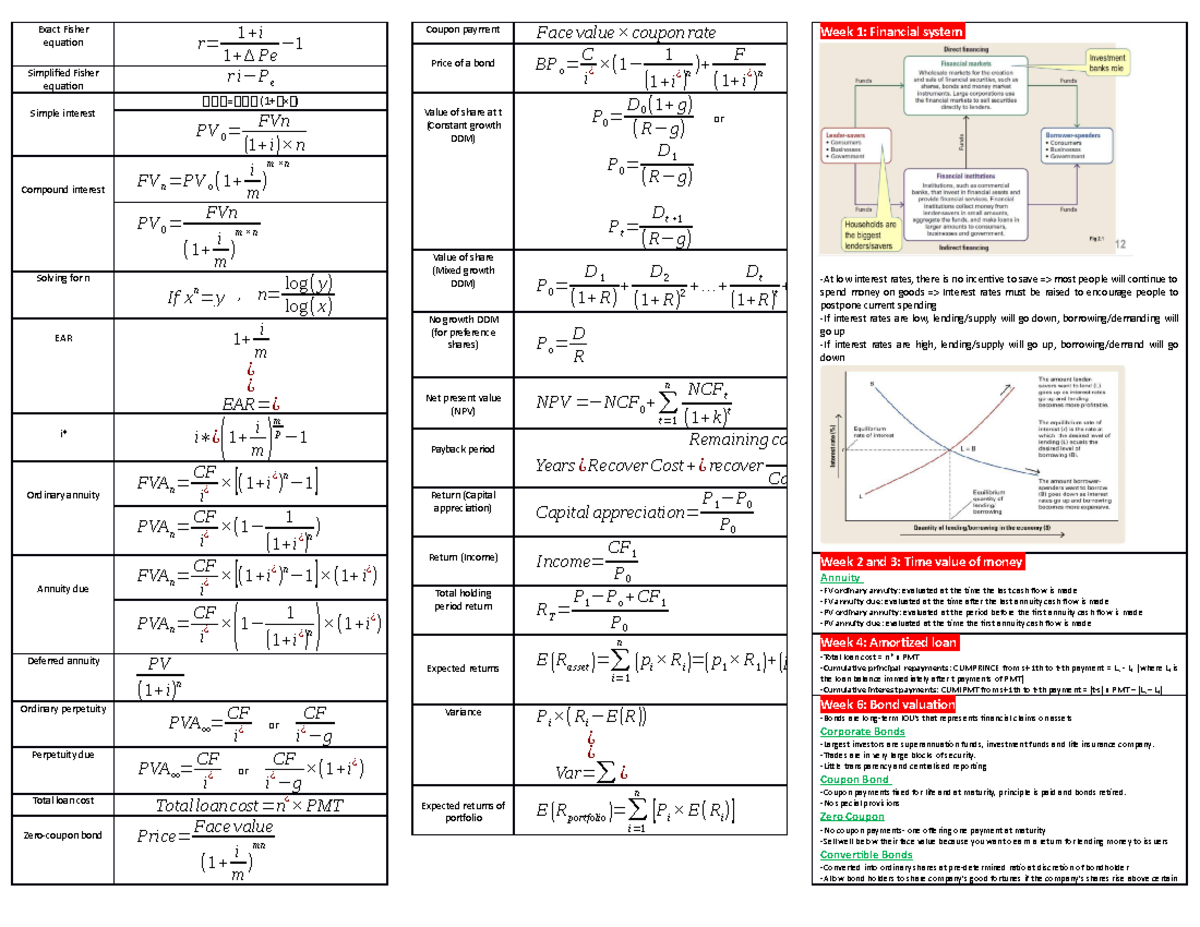 Exact Fisher
equation
r = (1+i)/(1+Δ Pe) − 1
Simplified Fisher
equation
r i − P_e
Simple interest
▯▯▯=▯▯▯(1+▯×▯)
PV_0 = FVn/((1+i)×n)
Compound interest
FV_n = PV_o(1+i/m)^(m×n)
PV_0 = FVn/(1+i/m)^(m×n)
Solving for n
If x^n = y , n = log(y)/log(x)
EAR
1+ i/m
¿
¿
EAR=¿
i*
i*¿(1+i/m)^(m/p) − 1
Ordinary annuity
FVA_n = CF/i^¿ × [(1+i^¿)^n − 1]
PVA_n = CF/i^¿ × (1 − 1/(1+i^¿)^n)
Annuity due
FVA_n = CF/i^¿ × [(1+i^¿)^n − 1] × (1+i^¿)
PVA_n = CF/i^¿ × (1 − 1/(1+i^¿)^n) × (1+i^¿)
Deferred annuity
PV/(1+i)^n
Ordinary perpetuity
PVA_∞ = CF/i^¿ or CF/(i^¿−g)
Perpetuity due
PVA_∞ = CF/i^¿ or CF/(i^¿−g) × (1+i^¿)
Total loan cost
Total loan cost = n^¿ × PMT
Zero-coupon bond
Price = Face value/(1+i/m)^mn
Coupon payment
Face value × coupon rate
Price of a bond
BP_o = C/i^¿ × (1 − 1/(1+i^¿)^n) + F/(1+i^¿)^n
Value of share at t
(Constant growth
DDM)
P_0 = D_0(1+g)/(R−g) or
P_0 = D_1/(R−g)
P_t = D_t+1/(R−g)
Value of share
(Mixed growth
DDM)
P_0 = D_1/(1+R) + D_2/(1+R)^2 + ... + D_t/(1+R)^t +
No growth DDM
(for preference
shares)
P_o = D/R
Net present value
(NPV)
NPV = −NCF_0 + ∑_{t=1}^{n} NCF_t/(1+k)^t
Payback period
Remaining co
Years ¿ Recover Cost + ¿ recover
Co
Return (Capital
appreciation)
Capital appreciation = (P_1−P_0)/P_0
Return (Income)
Income = CF_1/P_0
Total holding
period return
R_T = (P_1−P_o+CF_1)/P_0
Expected returns
E(R_asset) = ∑_{i=1}^{n} (p_i×R_i) = (p_1×R_1)+(
Variance
P_i×(R_i−E(R))
¿
¿
Var=∑¿
Expected returns of
portfolio
E(R_portfolio) = ∑_{i=1}^{n} [P_i×E(R_i)]
Week 1: Financial system
Direct financing
Investment
banks role
Financial markets
Wholesale markets for the creation
and sale of financial securities, such as
shares, bonds and money market
instruments. Large corporations use
the financial markets to sell securities
directly to lenders.
Funds
Funds
Lender-savers
• Consumers
• Businesses
• Government
Funds
Borrower-spenders
• Consumers
• Businesses
• Government
Financial institutions
Institutions, such as commercial
banks, that invest in financial assets and
provide financial services. Financial
institutions collect money from
lender-savers in small amounts,
aggregate the funds, and make loans in
larger amounts to consumers,
businesses and government.
Funds
Funds
Households are
the biggest
lenders/savers
Indirect financing
Fig 2.1
12
-At low interest rates, there is no incentive to save => most people will continue to
spend money on goods => Interest rates must be raised to encourage people to
postpone current spending
-If interest rates are low, lending/supply will go down, borrowing/demanding will
go up
-If interest rates are high, lending/supply will go up, borrowing/demand will go
down
Interest rate (%)
B
Equilibrium
rate of interest
r
L
L = B
Equilibrium
quantity of
lending/
borrowing
The amount lender-
savers want to lend (L)
goes up as interest rates
go up and lending
becomes more profitable.
The equilibrium rate of
interest (r) is the rate at
which the desired level of
lending (L) equals the
desired level of
borrowing (B).
The amount borrower-
spenders want to borrow
(B) goes down as interest
rates go up and borrowing
becomes more expensive.
Quantity of lending/borrowing in the economy ($)
Week 2 and 3: Time value of money
Annuity
-FV ordinary annuity: evaluated at the time the last cash flow is made
-FV annuity due: evaluated at the time after the last annuity cash flow is made
-PV ordinary annuity: evaluated at the period before the first annuity cash flow is made
-PV annuity due: evaluated at the time the first annuity cash flow is made
Week 4: Amortized loan
-Total loan cost = n* x PMT
-Cumulative principal repayments: CUMPRINCE from s+1th to t-th payment = Ls - Lt (where Lt is
the loan balance immediately after t payments of PMT)
-Cumulative interest payments: CUMIPMT from s+1th to t-th payment = (t-s) x PMT – (Ls – Lt)
Week 6: Bond valuation
-Bonds are long-term IOU's that represents financial claims on assets
Corporate Bonds
-Largest investors are superannuation funds, investment funds and life insurance company.
-Trades are in very large blocks of security.
-Little transparency and centralised reporting
Coupon Bond
-Coupon payments fixed for life and at maturity, principle is paid and bonds retired.
-No special provisions
Zero Coupon
-No coupon payments- one offering one payment at maturity
-Sell well below their face value because you want to earn a return for lending money to issuers
Convertible Bonds
-Converted into ordinary shares at pre-determined ratio at discretion of bondholder
-Allow bond holders to share company's good fortunes if the company's shares rise above certain